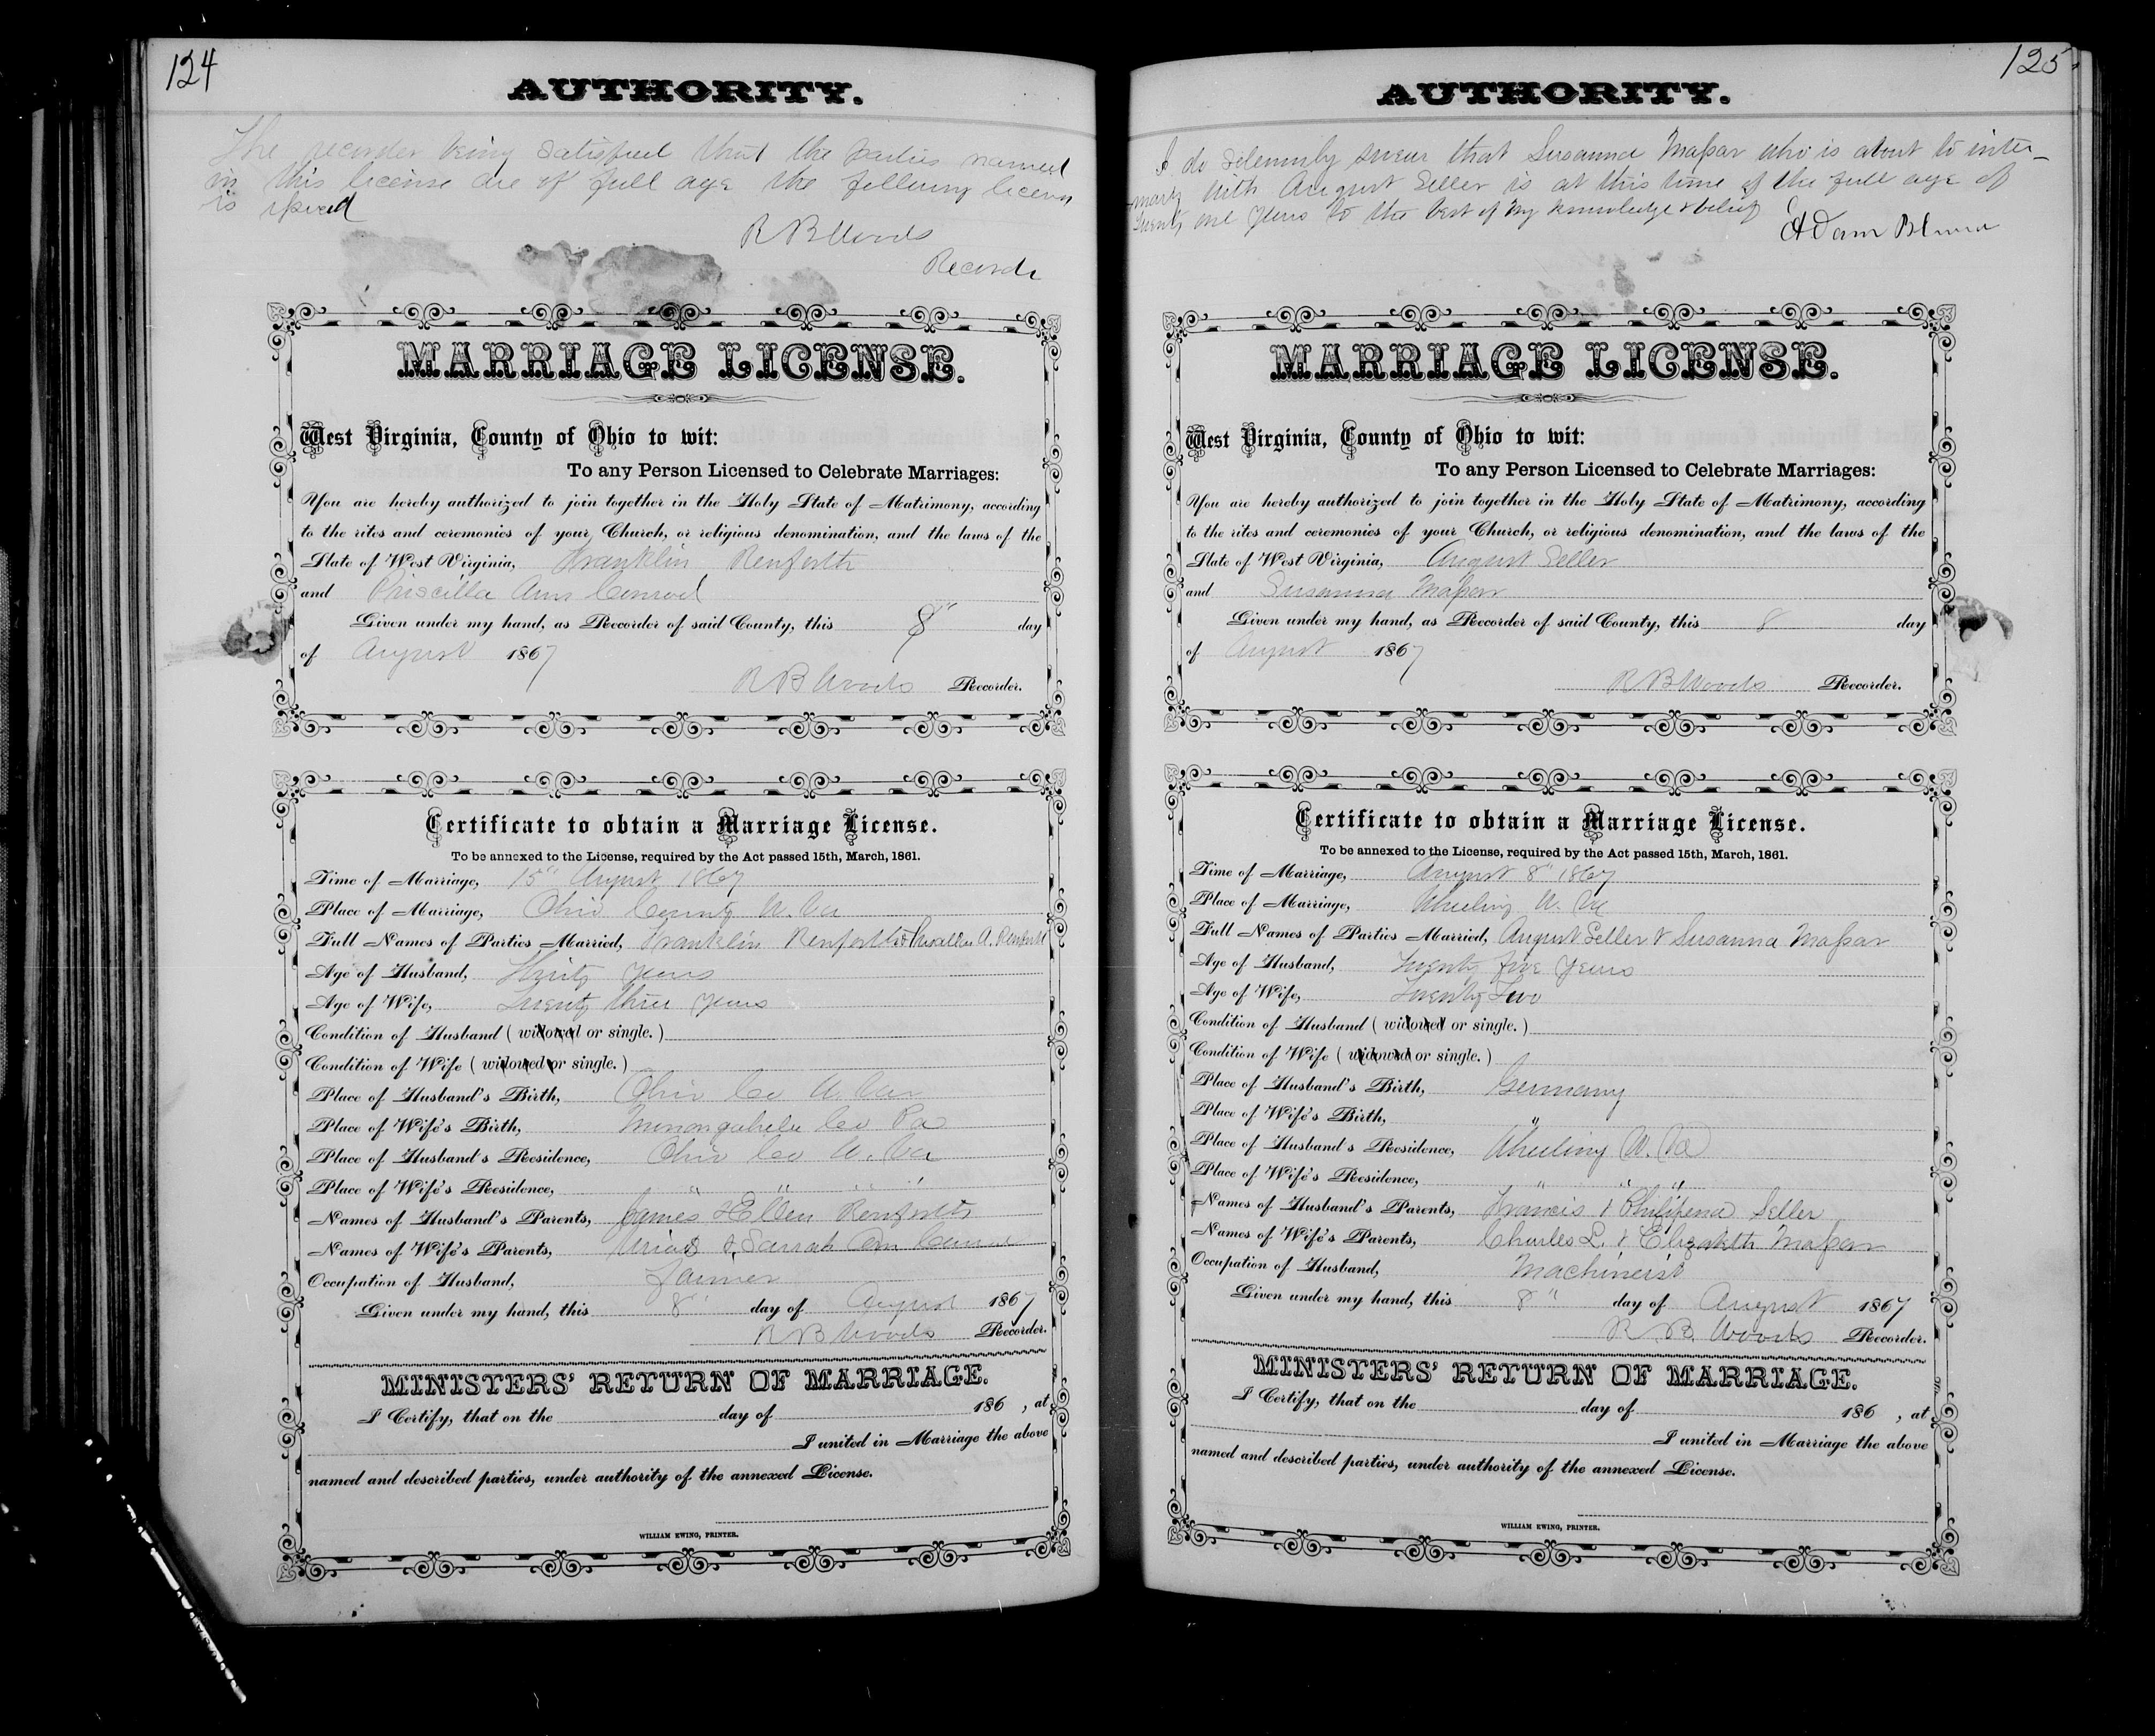 124
AUTHORITY.
The recorder being satisfied that the parties named
in this license are of full age the following license
is issued
R B Woods
Recorder
MARRIAGE LICENSE.
West Virginia, County of Ohio to wit:
To any Person Licensed to Celebrate Marriages:
You are hereby authorized to join together in the Holy State of Matrimony, according
to the rites and ceremonies of your Church, or religious denomination, and the laws of the
State of West Virginia, Franklin Renforth
and Priscilla Ann Conrod
Given under my hand, as Recorder of said County, this 8" day
of August 1867
R B Woods Recorder.
Certificate to obtain a Marriage License.
To be annexed to the License, required by the Act passed 15th, March, 1861.
Time of Marriage, 15" August 1867
Place of Marriage, Ohio County W. Va
Full Names of Parties Married, Franklin Renforth & Priscilla A. Renforth
Age of Husband, Thirty years
Age of Wife, Twenty three years
Condition of Husband ( widowed or single. )
Condition of Wife ( widowed or single. )
Place of Husband's Birth, Ohio Co W. Va
Place of Wife's Birth, Monongahela Co Pa
Place of Husband's Residence, Ohio Co W. Va
Place of Wife's Residence, " " " "
Names of Husband's Parents, James & Ellen Renforth
Names of Wife's Parents, Urias & Sarrah Ann Conrod
Occupation of Husband, Farmer
Given under my hand, this 8" day of August 1867
R B Woods Recorder.
MINISTERS' RETURN OF MARRIAGE.
I Certify, that on the day of 186 , at
I united in Marriage the above
named and described parties, under authority of the annexed License.
WILLIAM EWING, PRINTER.
125
AUTHORITY.
I do solemnly swear that Susanna Maſsar who is about to inter-
marry with August Seller is at this time of the full age of
twenty one years to the best of my knowledge & belief
Adam
MARRIAGE LICENSE.
West Virginia, County of Ohio to wit:
To any Person Licensed to Celebrate Marriages:
You are hereby authorized to join together in the Holy State of Matrimony, according
to the rites and ceremonies of your Church, or religious denomination, and the laws of the
State of West Virginia, August Seller
and Susanna Maſsar
Given under my hand, as Recorder of said County, this 8 day
of August 1867
R B Woods Recorder.
Certificate to obtain a Marriage License.
To be annexed to the License, required by the Act passed 15th, March, 1861.
Time of Marriage, August 8" 1867
Place of Marriage, Wheeling W. Va
Full Names of Parties Married, August Seller & Susanna Maſsar
Age of Husband, Twenty five years
Age of Wife, Twenty Two
Condition of Husband ( widowed or single. )
Condition of Wife ( widowed or single. )
Place of Husband's Birth, Germany
Place of Wife's Birth, "
Place of Husband's Residence, Wheeling W. Va
Place of Wife's Residence, " " "
Names of Husband's Parents, Francis & Philipena Seller
Names of Wife's Parents, Charles L. & Elizabeth Maſsar
Occupation of Husband, Machineist
Given under my hand, this 8" day of August 1867
R. B. Woods Recorder.
MINISTERS' RETURN OF MARRIAGE.
I Certify, that on the day of 186 , at
I united in Marriage the above
named and described parties, under authority of the annexed License.
WILLIAM EWING, PRINTER.